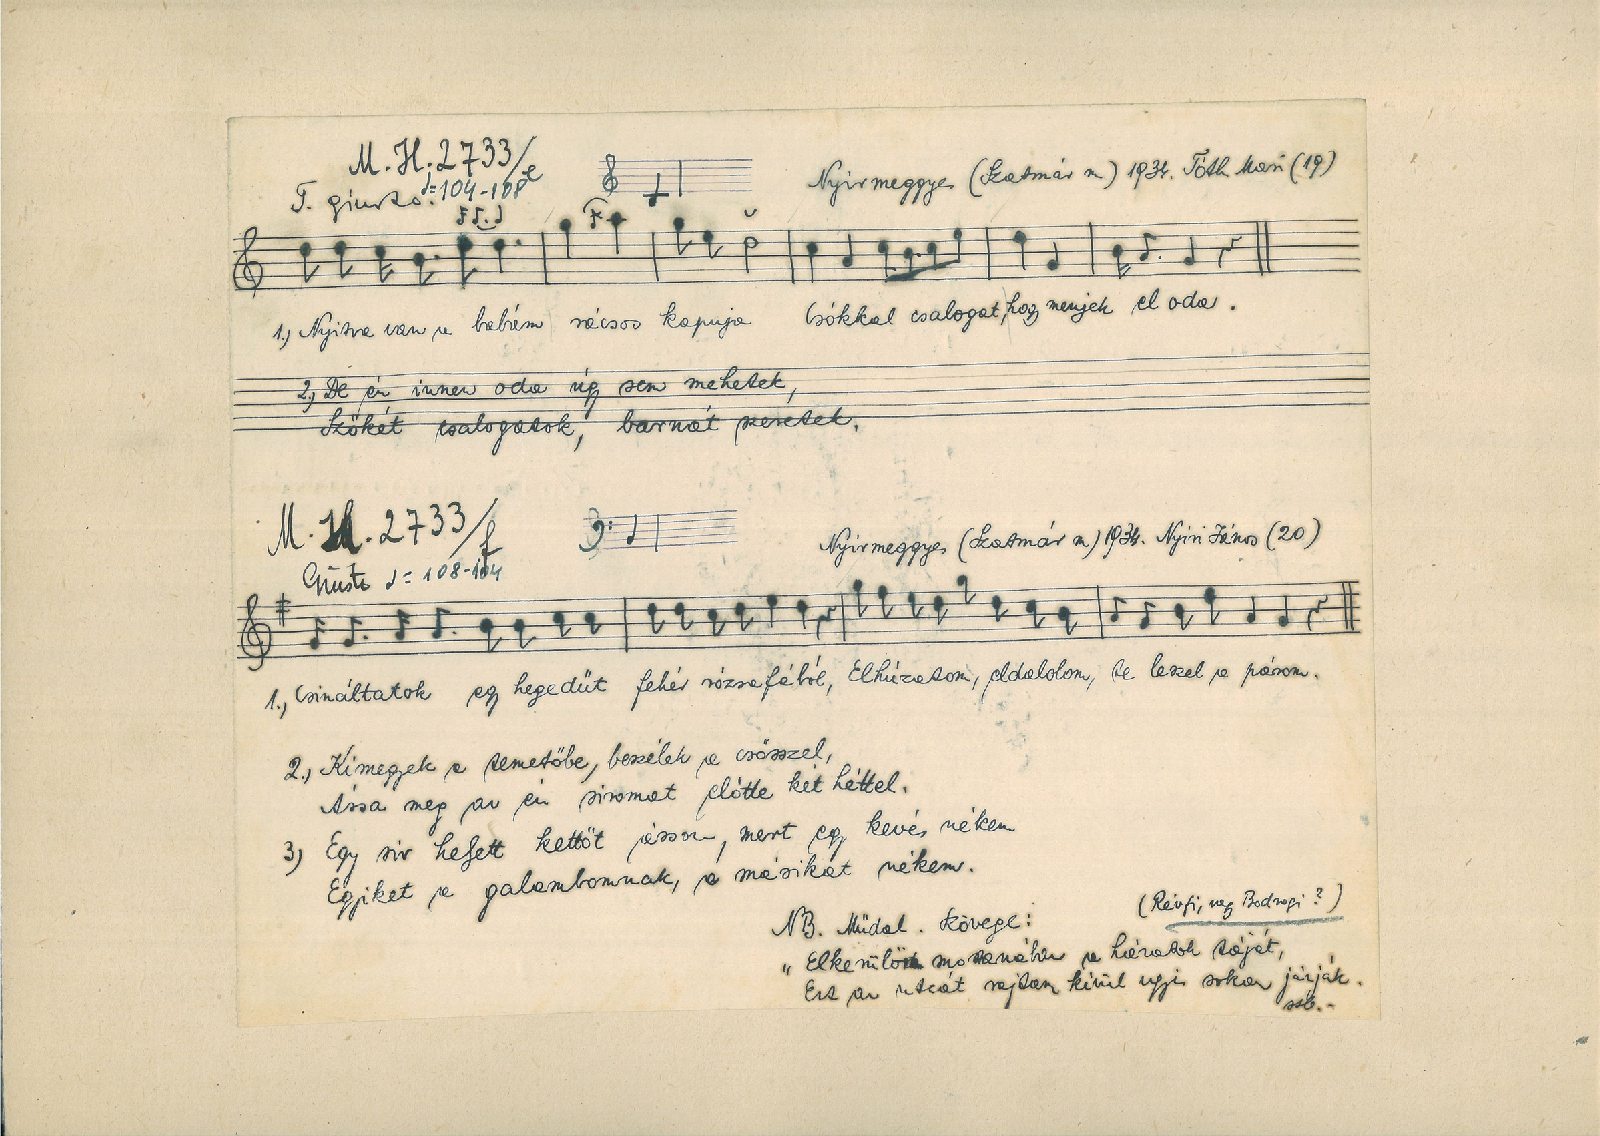 M. H. 2733/e
T. giusto. ♩=104-108
Nyírmeggyes (Szatmár m) 1934. Tóth Mari (19)
1., Nyitva van a babám rácsos kapuja Csókkal csalogat, hogy menjek el oda.
2., De én innen oda úgy sem mehetek,
Szőkét csalogatok, barnát szeretek.
M. H. 2733/f
Giusto ♩=108-104
Nyírmeggyes (Szatmár m) 1934. Nyiri János (20)
1., Csináltatok egy hegedűt fehér rózsafából, Elhúzatom, eldalolom, te leszel a párom.
2., Kimegyek a temetőbe, beszélek a csősszel,
Ássa meg az én síromat előtte két héttel.
3) Egy sír helyett kettőt ásson, mert egy kevés nékem
Egyiket a galambomnak, a másikat nékem.
(Révfi, vagy Bodrogi?)
NB. Műdal. Szövege:
„Elkerülöm mostanába a házatok táját,
Ezt az utcát rajtam kívül ugyis sokan járják.
stb.-